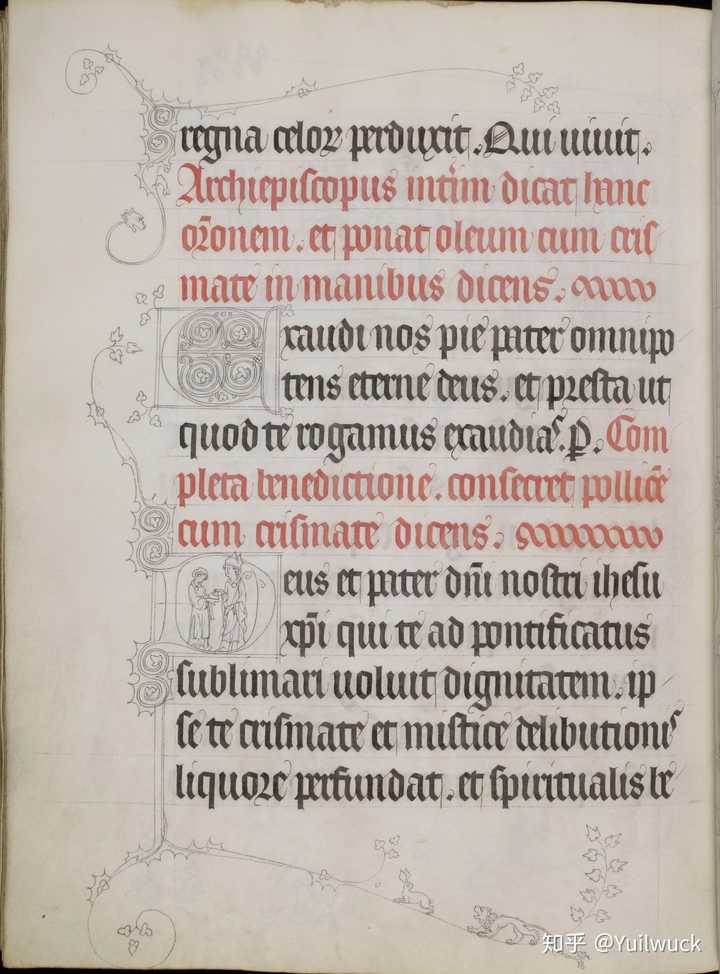 regna celoꝝ perduxit. Qui uiuit.
Archiepiscopus intīm dicat hanc
or̄onem. et ponat oleum cum cris
mate in manibus dicens.
Exaudi nos pie pater omnipo
tens eterne deus. et presta ut
quod te rogamus exaudias. P. Com
pleta benedictione. consecret pollicē
cum crismate dicens.
Deus et pater dn̄i nostri ihesu
xp̄i qui te ad pontificatus
sublimari uoluit dignitatem. ip
se te crismate et mistice delibutionis
liquore perfundat. et spiritualis be
知乎 @Yuilwuck